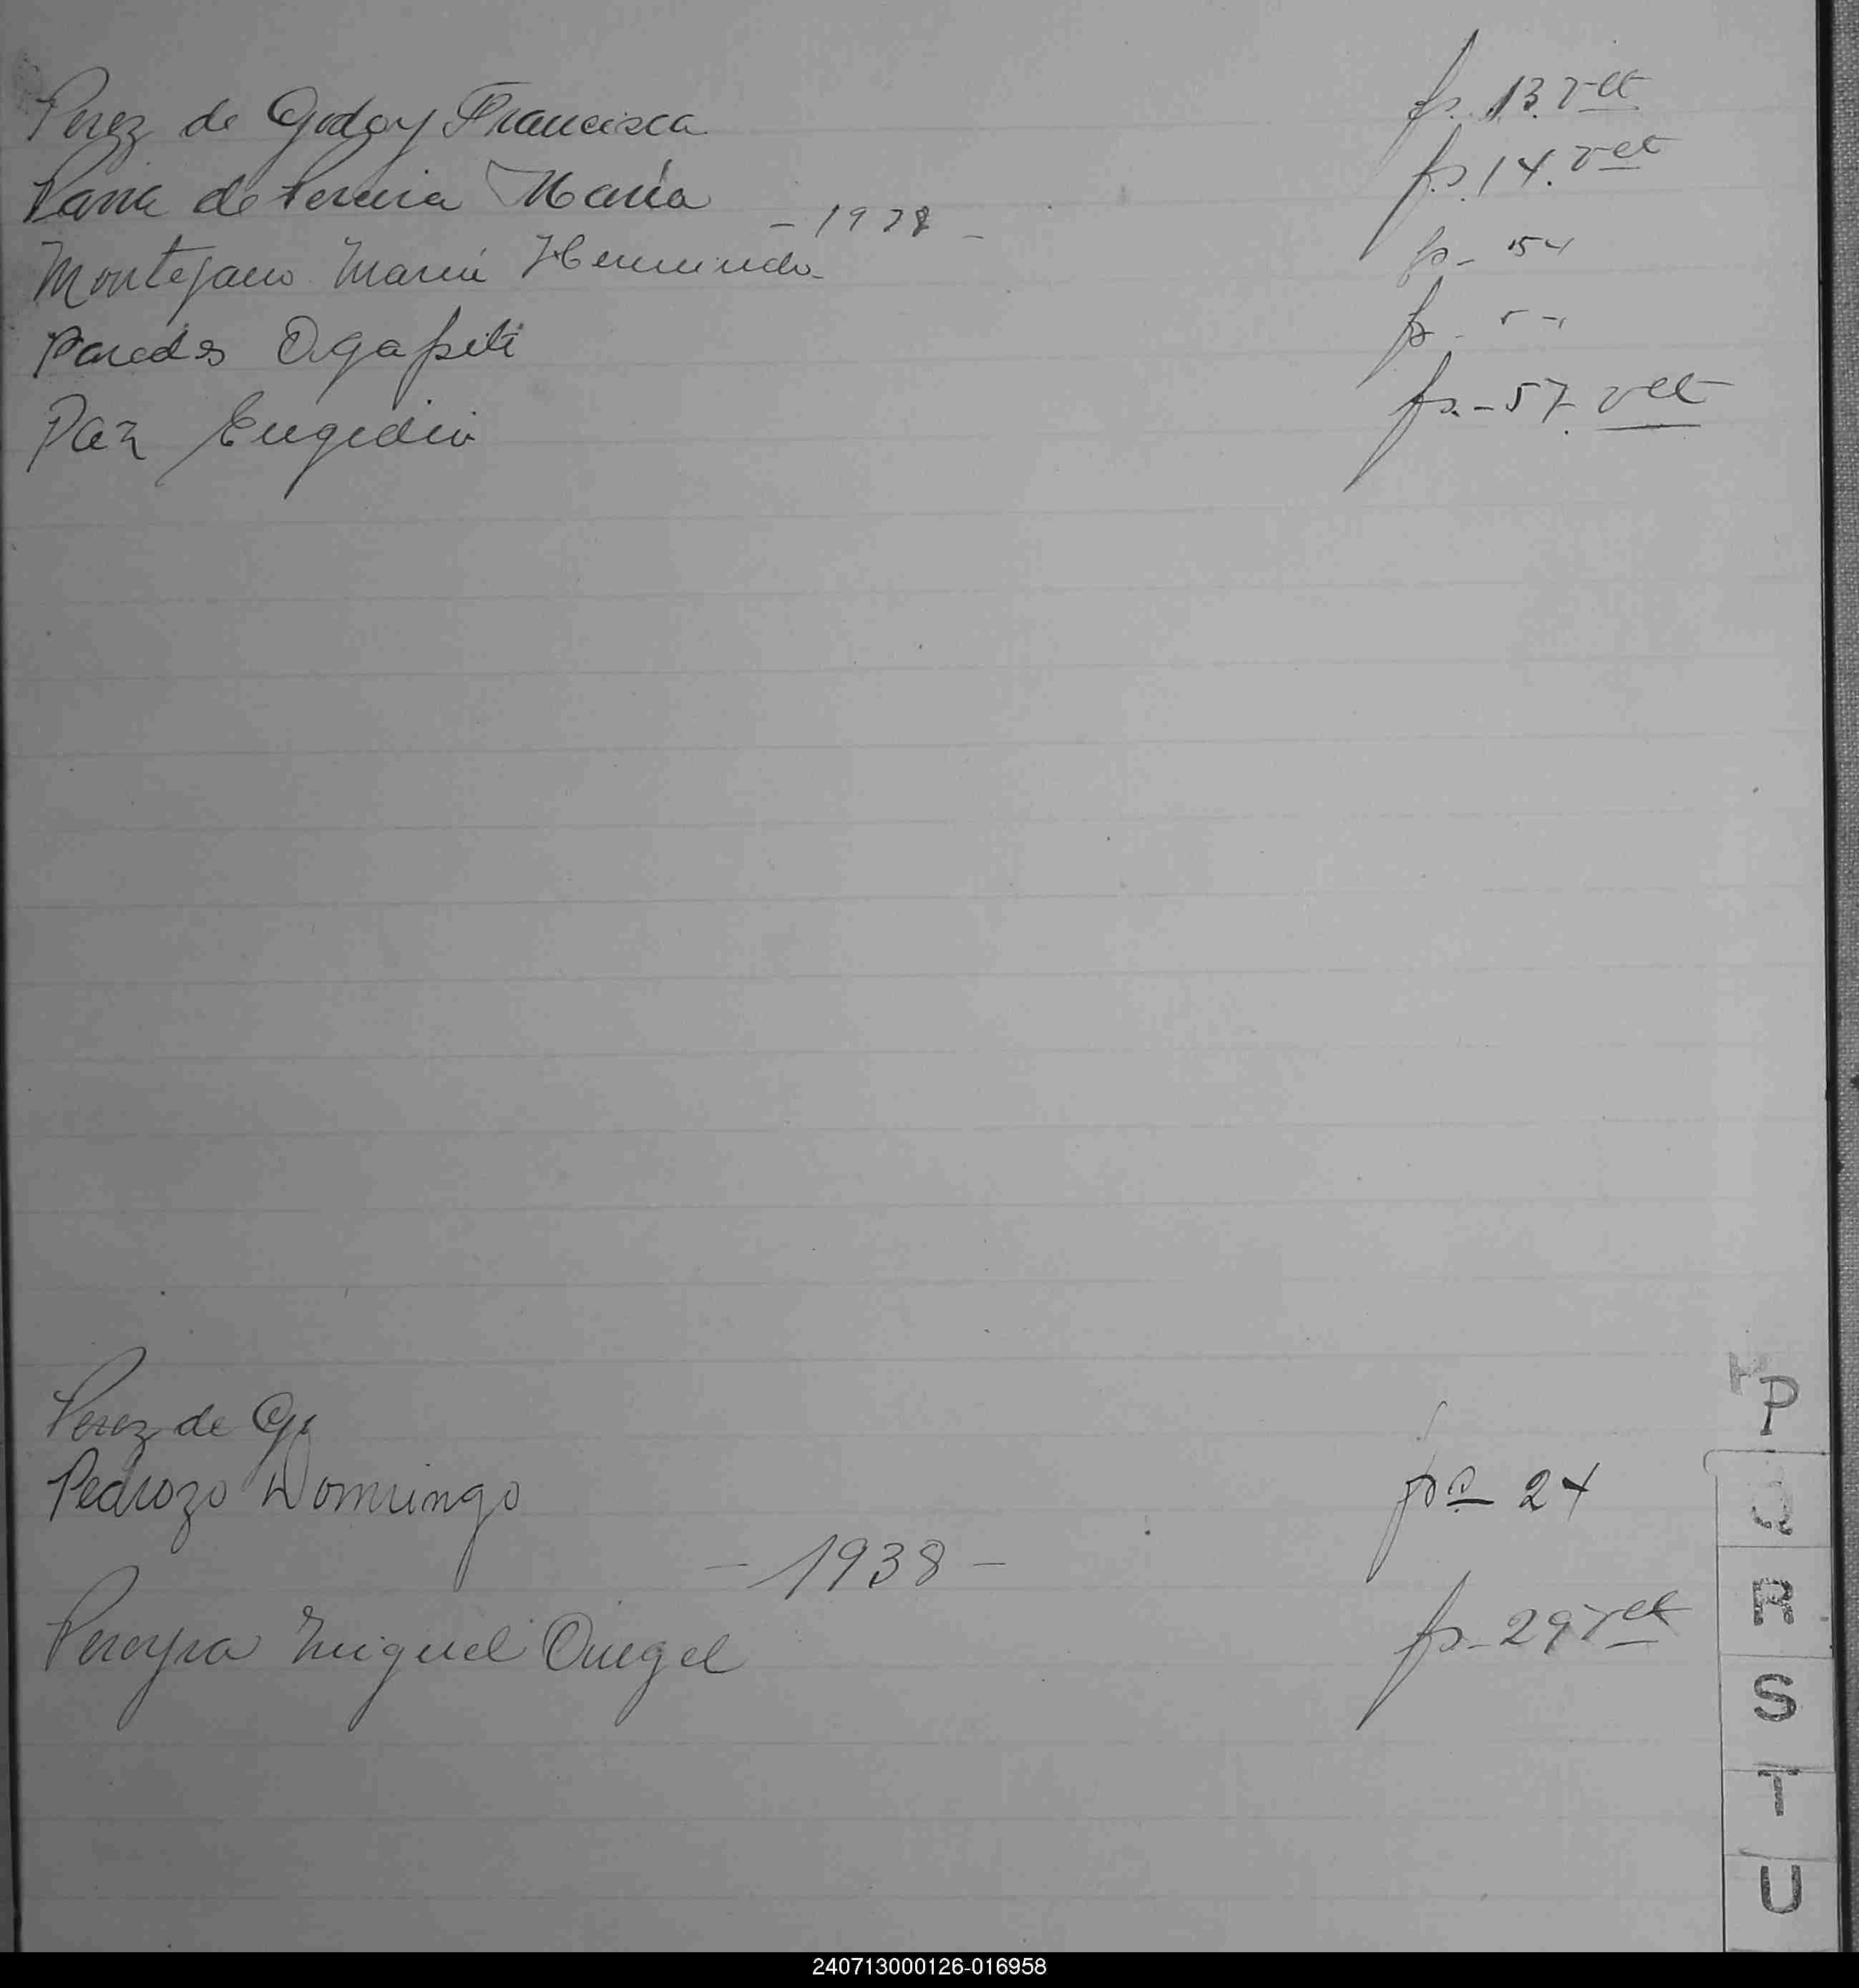 Perez de Godoy Francisca fs. 13. vlt
Paria de Pereira María fs. 14. vlt
- 1938 -
Montejano María Herminda fs - 54
Paredes Agapito fs -
Paz Eugidio fs. - 57. vlt
Perez de Go
Pedrozo Domingo fs 24
- 1938 -
Pereyra Miguel Angel fs - 29 vlt
P
Q
R
S
T
U
240713000126-016958